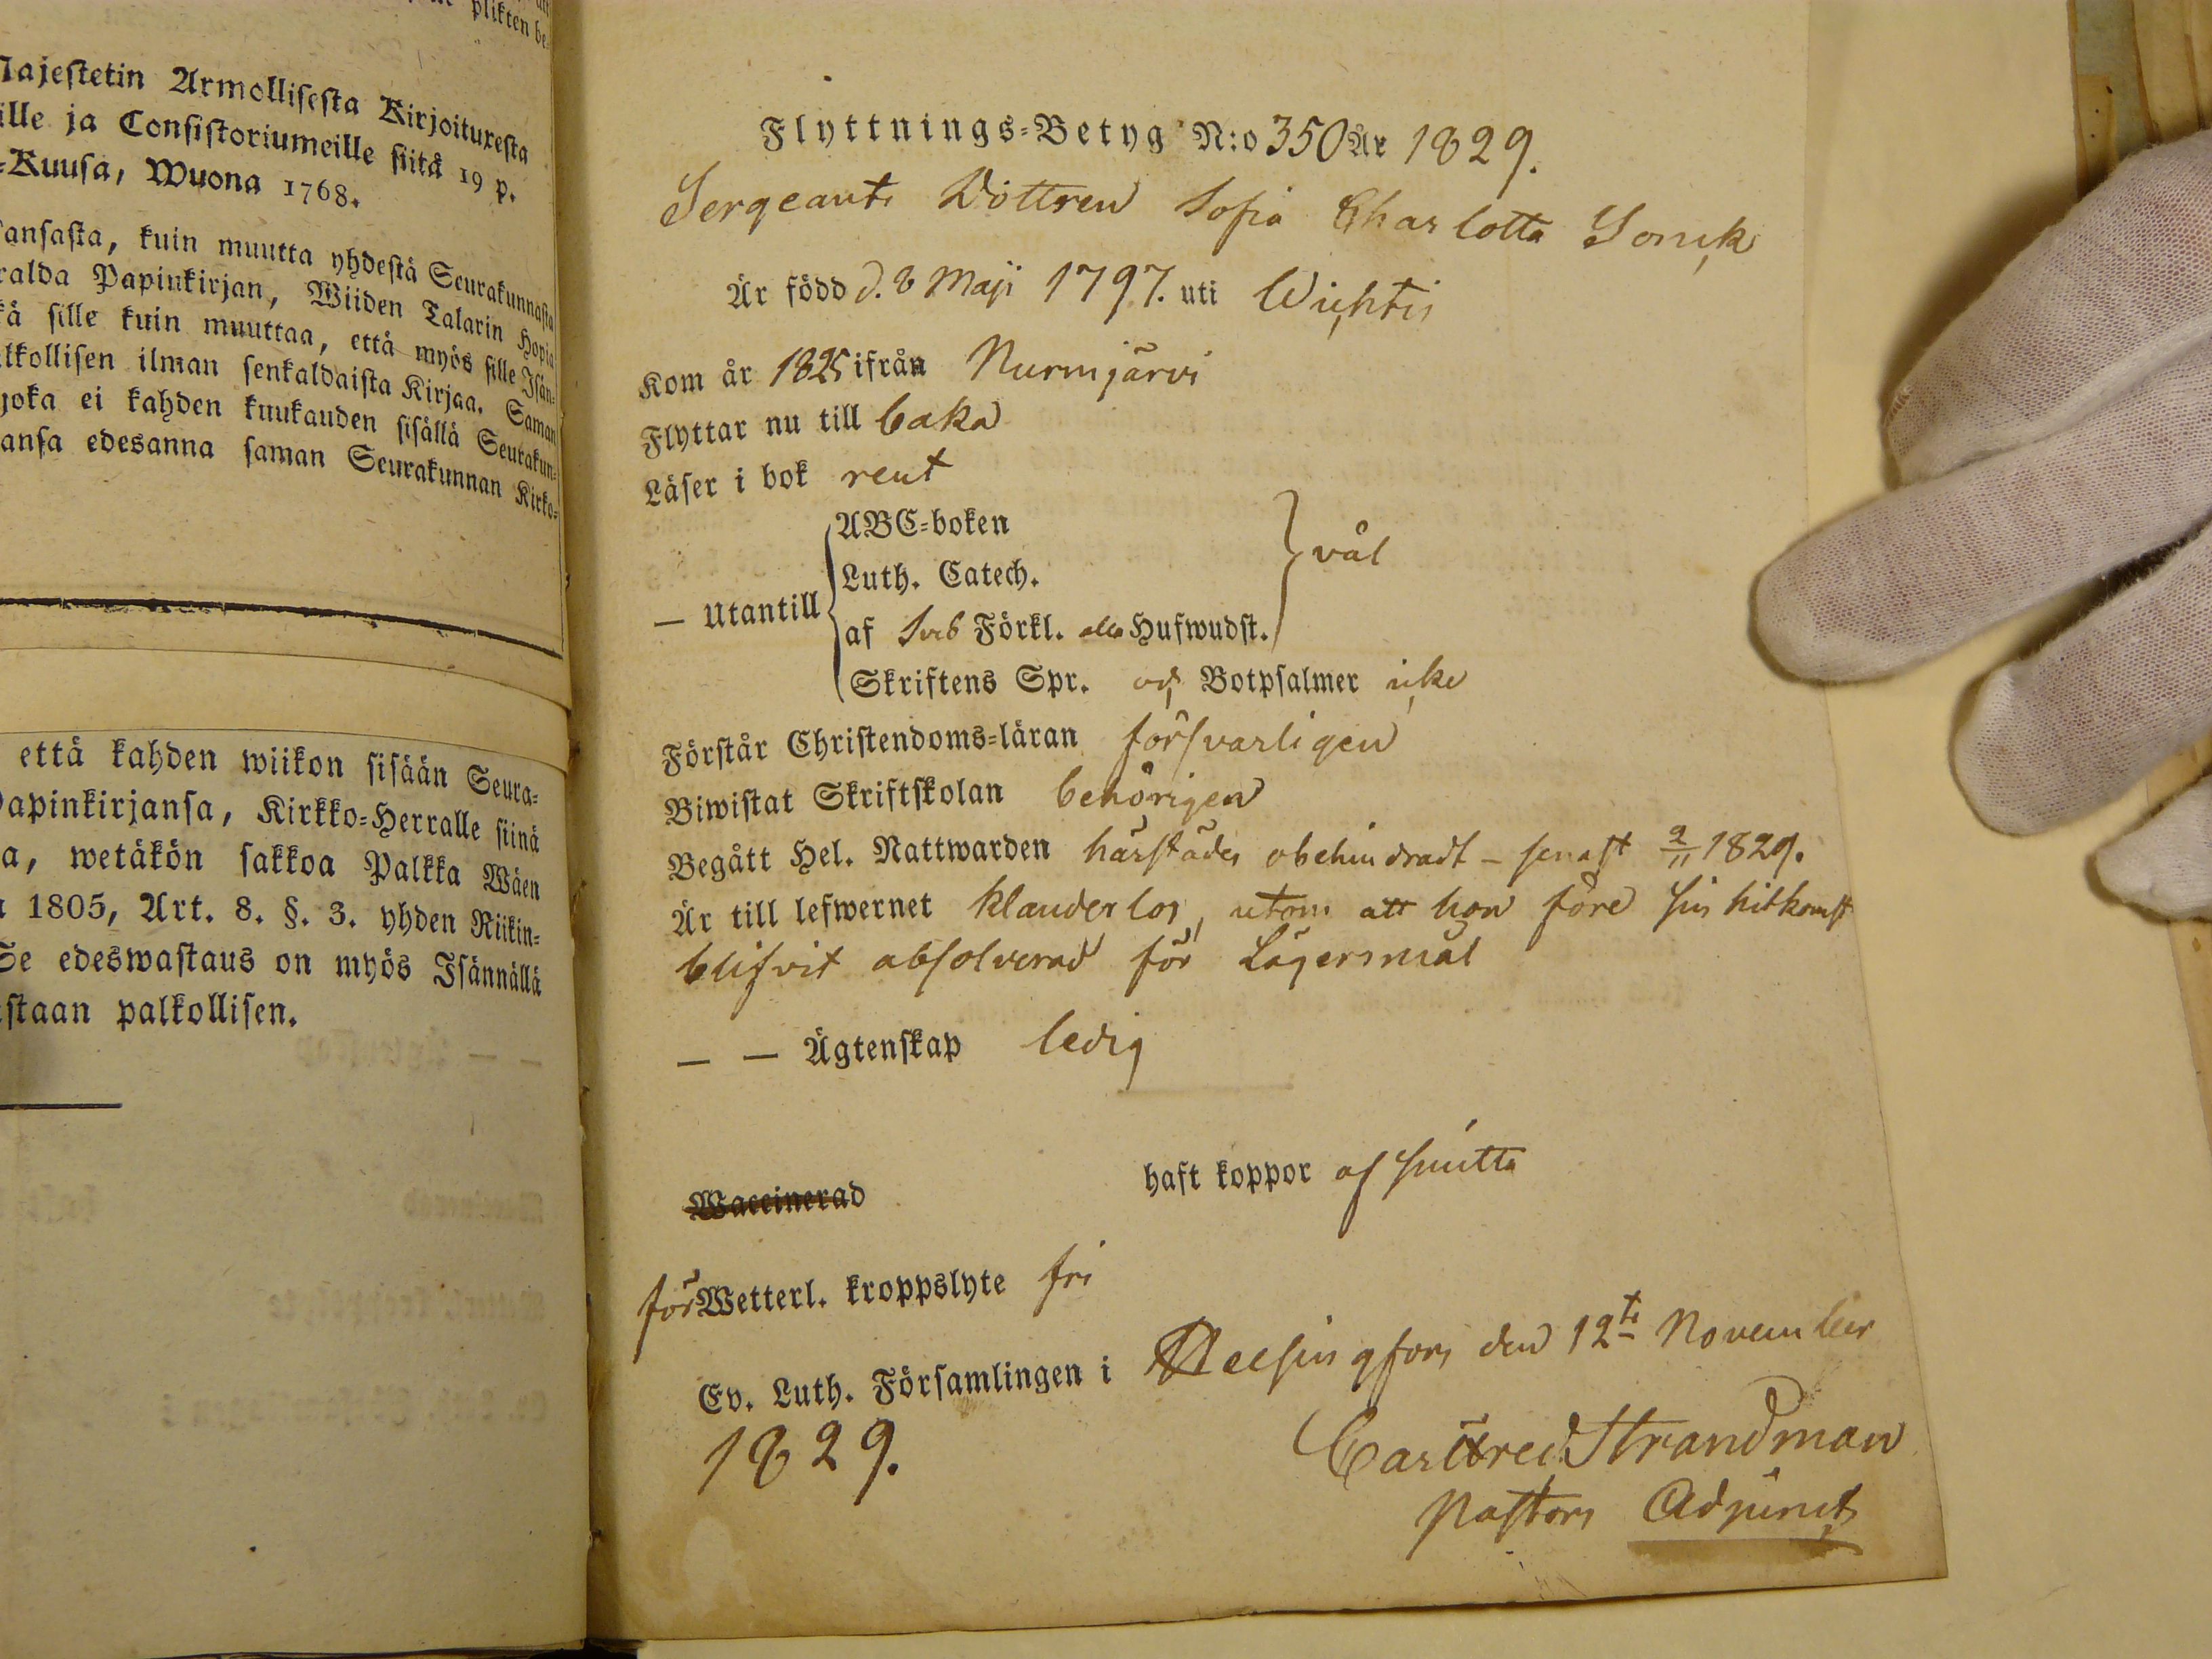 plikten be-
Majestetin Armollisesta Kirjoituxesta
ille ja Consistoriumeille siitä 19 p.
-Kuusa, Wuona 1768.
ansasta, kuin muutta yhdestä Seurakunnasta
ralda Papinkirjan, Wiiden Talarin Hopia
kä sille kuin muuttaa, että myös sille Isän-
lkollisen ilman senkaldaista Kirjaa. Saman
joka ei kahden kuukauden sisällä Seurakun-
ansa edesanna saman Seurakunnan Kirko-
että kahden wiikon sisään Seura-
Papinkirjansa, Kirkko-Herralle siinä
a, wetäkön sakkoa Palkka Wäen
1805, Art. 8. §. 3. yhden Riikin-
Se edeswastaus on myös Isännällä
staan palkollisen.
Flyttnings-Betyg N:o 350 År 1829.
Sergeants Dottren Sofia Charlotta Sonck
Är född d. 8 Maji 1797. uti Wichtis
Kom år 1825 ifrån Nurmijärvi
Flyttar nu till baka
Läser i bok rent
— Utantill
ABC-boken
Luth. Catech.
af Sveb Förkl. alla Hufwudst.
väl
Skriftens Spr. och Botpsalmer icke
Förstår Christendoms-läran försvarligen
Biwistat Skriftskolan behörigen
Begått Hel. Nattwarden härstädes obehindradt - senast 2/11 1829.
Är till lefwernet klanderlös, utom att hon före sin hitkomst
blifvit absolverad för Lägersmål
— — Ägtenskap ledig
Waccinerad haft koppor af smitta
för Wetterl. kroppslyte fri
Ev. Luth. Församlingen i Helsingfors den 12te November
1829.
Carl Fred. Strandman
Pastors Adjunct